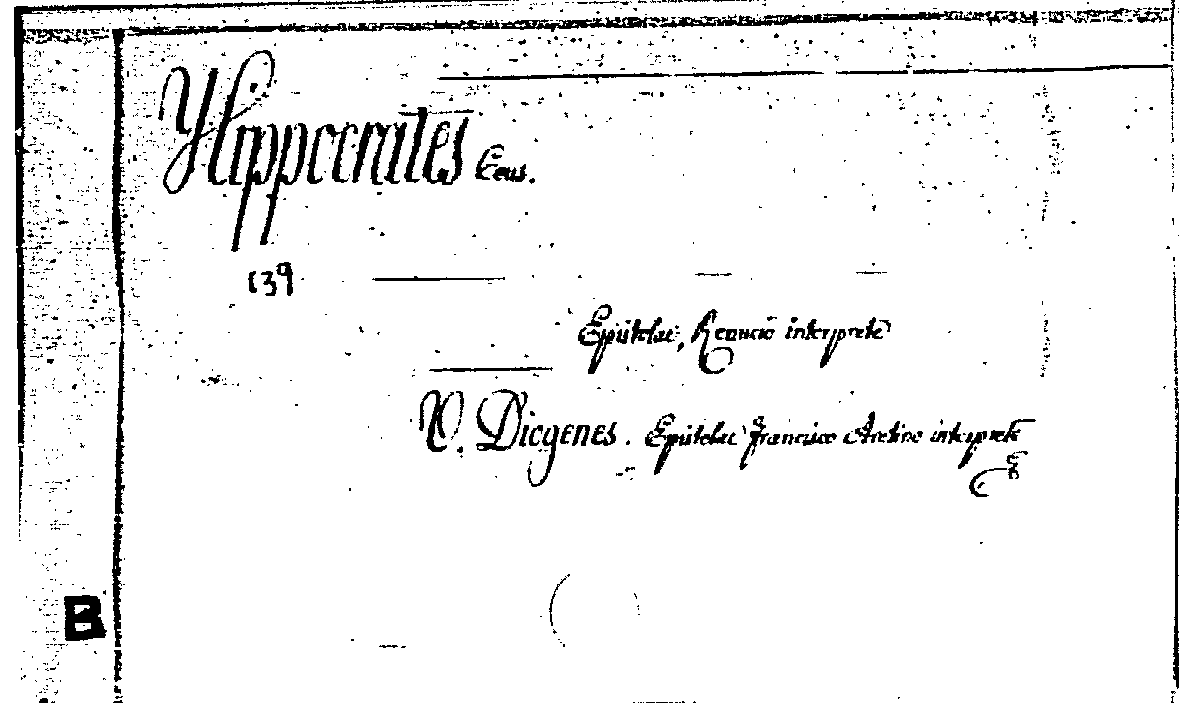 Hippocrates Cous.
139
Epistolae, Renucio interprete
V. Diogenes. Epistolae Francisco Aretino interprete
B